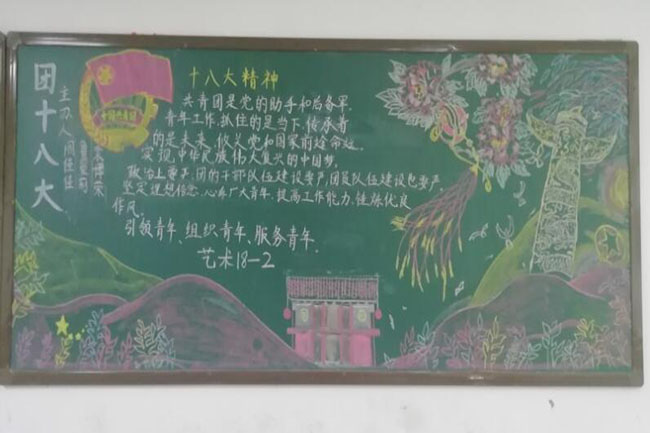 团十八大
主办人
中国共青团
十八大精神
共青团是党的助手和后备军.
青年工作,抓住的是当下,传承着
的是未来,攸关党和国家前途命运.
实现中华民族伟大复兴的中国梦.
政治上要强,团的干部队伍建设要严,团员队伍建设也要严.
坚定理想信念,心系广大青年,提高工作能力,锤炼优良
作风.
引领青年、组织青年、服务青年.
艺术18-2